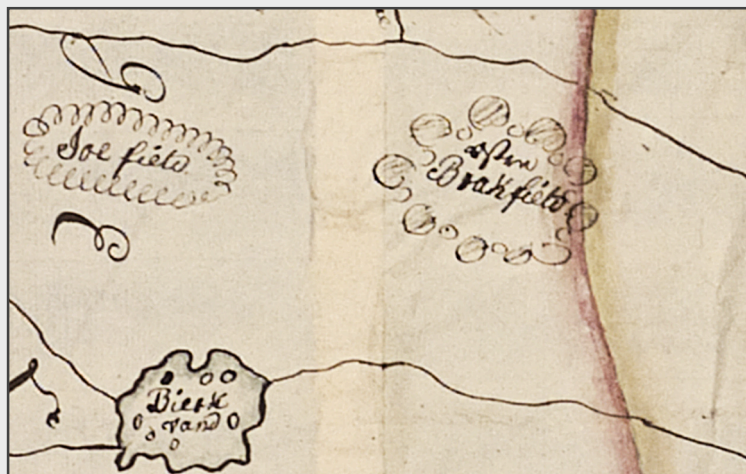 Joe field
østre
Brakfield
Bierk
vand